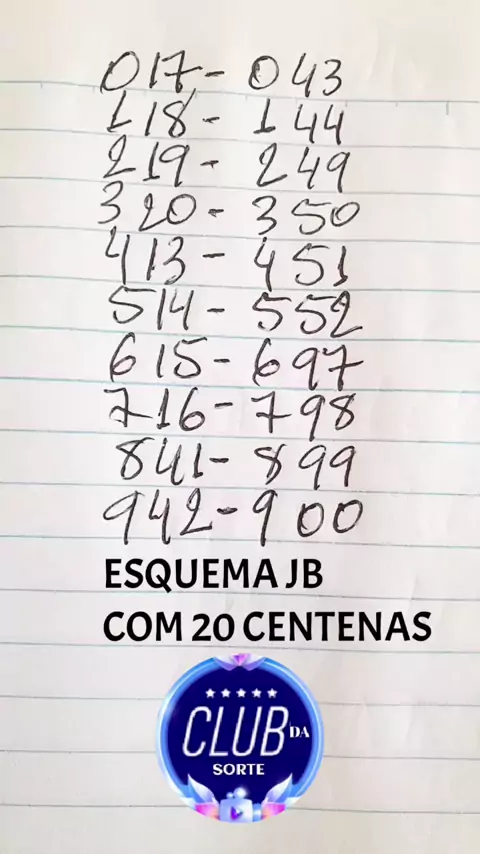 017- 043
118- 144
219- 249
320- 350
413- 451
514- 552
615- 697
716- 798
841- 899
942- 900
ESQUEMA JB
COM 20 CENTENAS
CLUB DA
SORTE